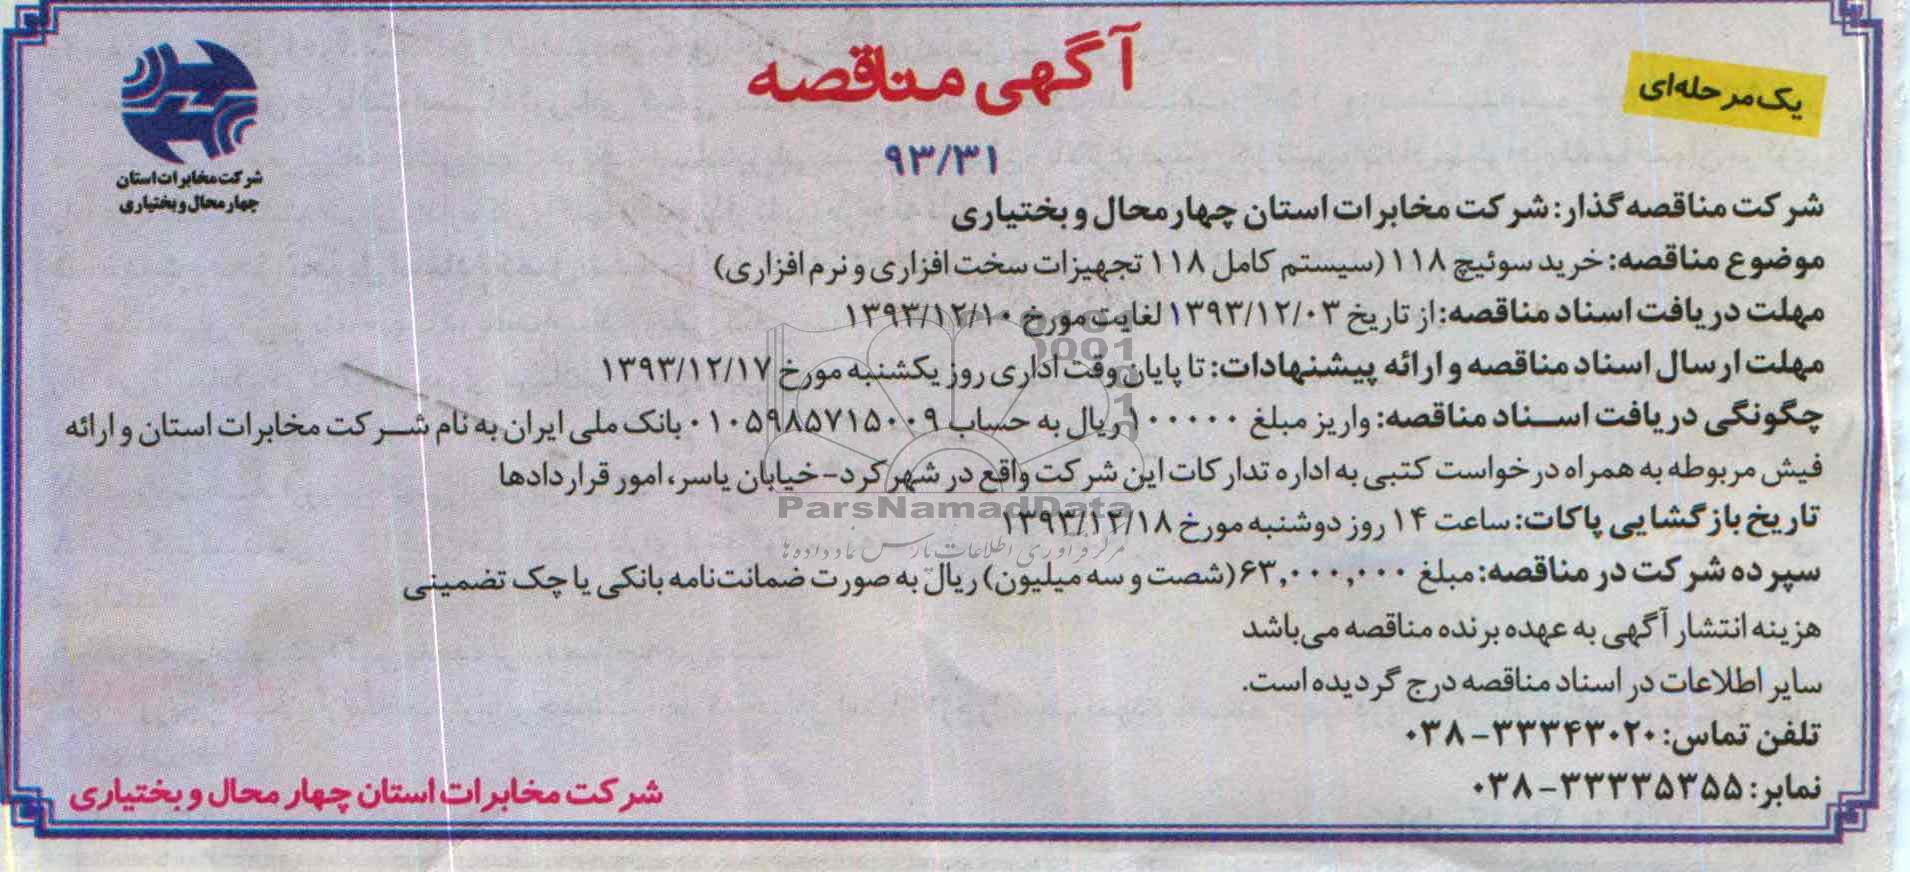 یک‌مرحله‌ای
آگهی مناقصه
۹۳/۳۱
شرکت مخابرات استان
چهارمحال و بختیاری
شرکت مناقصه گذار: شرکت مخابرات استان چهارمحال و بختیاری
موضوع مناقصه: خرید سوئیچ ۱۱۸ (سیستم کامل ۱۱۸ تجهیزات سخت افزاری و نرم افزاری)
مهلت دریافت اسناد مناقصه: از تاریخ ۱۳۹۳/۱۲/۰۳ لغایت مورخ ۱۳۹۳/۱۲/۱۰
مهلت ارسال اسناد مناقصه و ارائه پیشنهادات: تا پایان وقت اداری روز یکشنبه مورخ ۱۳۹۳/۱۲/۱۷
چگونگی دریافت اسناد مناقصه: واریز مبلغ ۱۰۰۰۰۰ ریال به حساب ۰۱۰۵۹۸۵۷۱۵۰۰۹ بانک ملی ایران به نام شرکت مخابرات استان و ارائه
فیش مربوطه به همراه درخواست کتبی به اداره تدارکات این شرکت واقع در شهرکرد- خیابان یاسر، امور قراردادها
تاریخ بازگشایی پاکات: ساعت ۱۴ روز دوشنبه مورخ ۱۳۹۳/۱۲/۱۸
سپرده شرکت در مناقصه: مبلغ ۶۳,۰۰۰,۰۰۰ (شصت و سه میلیون) ریال به صورت ضمانت‌نامه بانکی یا چک تضمینی
هزینه انتشار آگهی به عهده برنده مناقصه می‌باشد
سایر اطلاعات در اسناد مناقصه درج گردیده است.
تلفن تماس: ۳۳۳۴۳۰۲۰-۰۳۸
نمابر: ۳۳۳۳۵۳۵۵-۰۳۸
شرکت مخابرات استان چهار محال و بختیاری
ParsNamadData
مرکز فرآوری اطلاعات پارس نماد داده ها